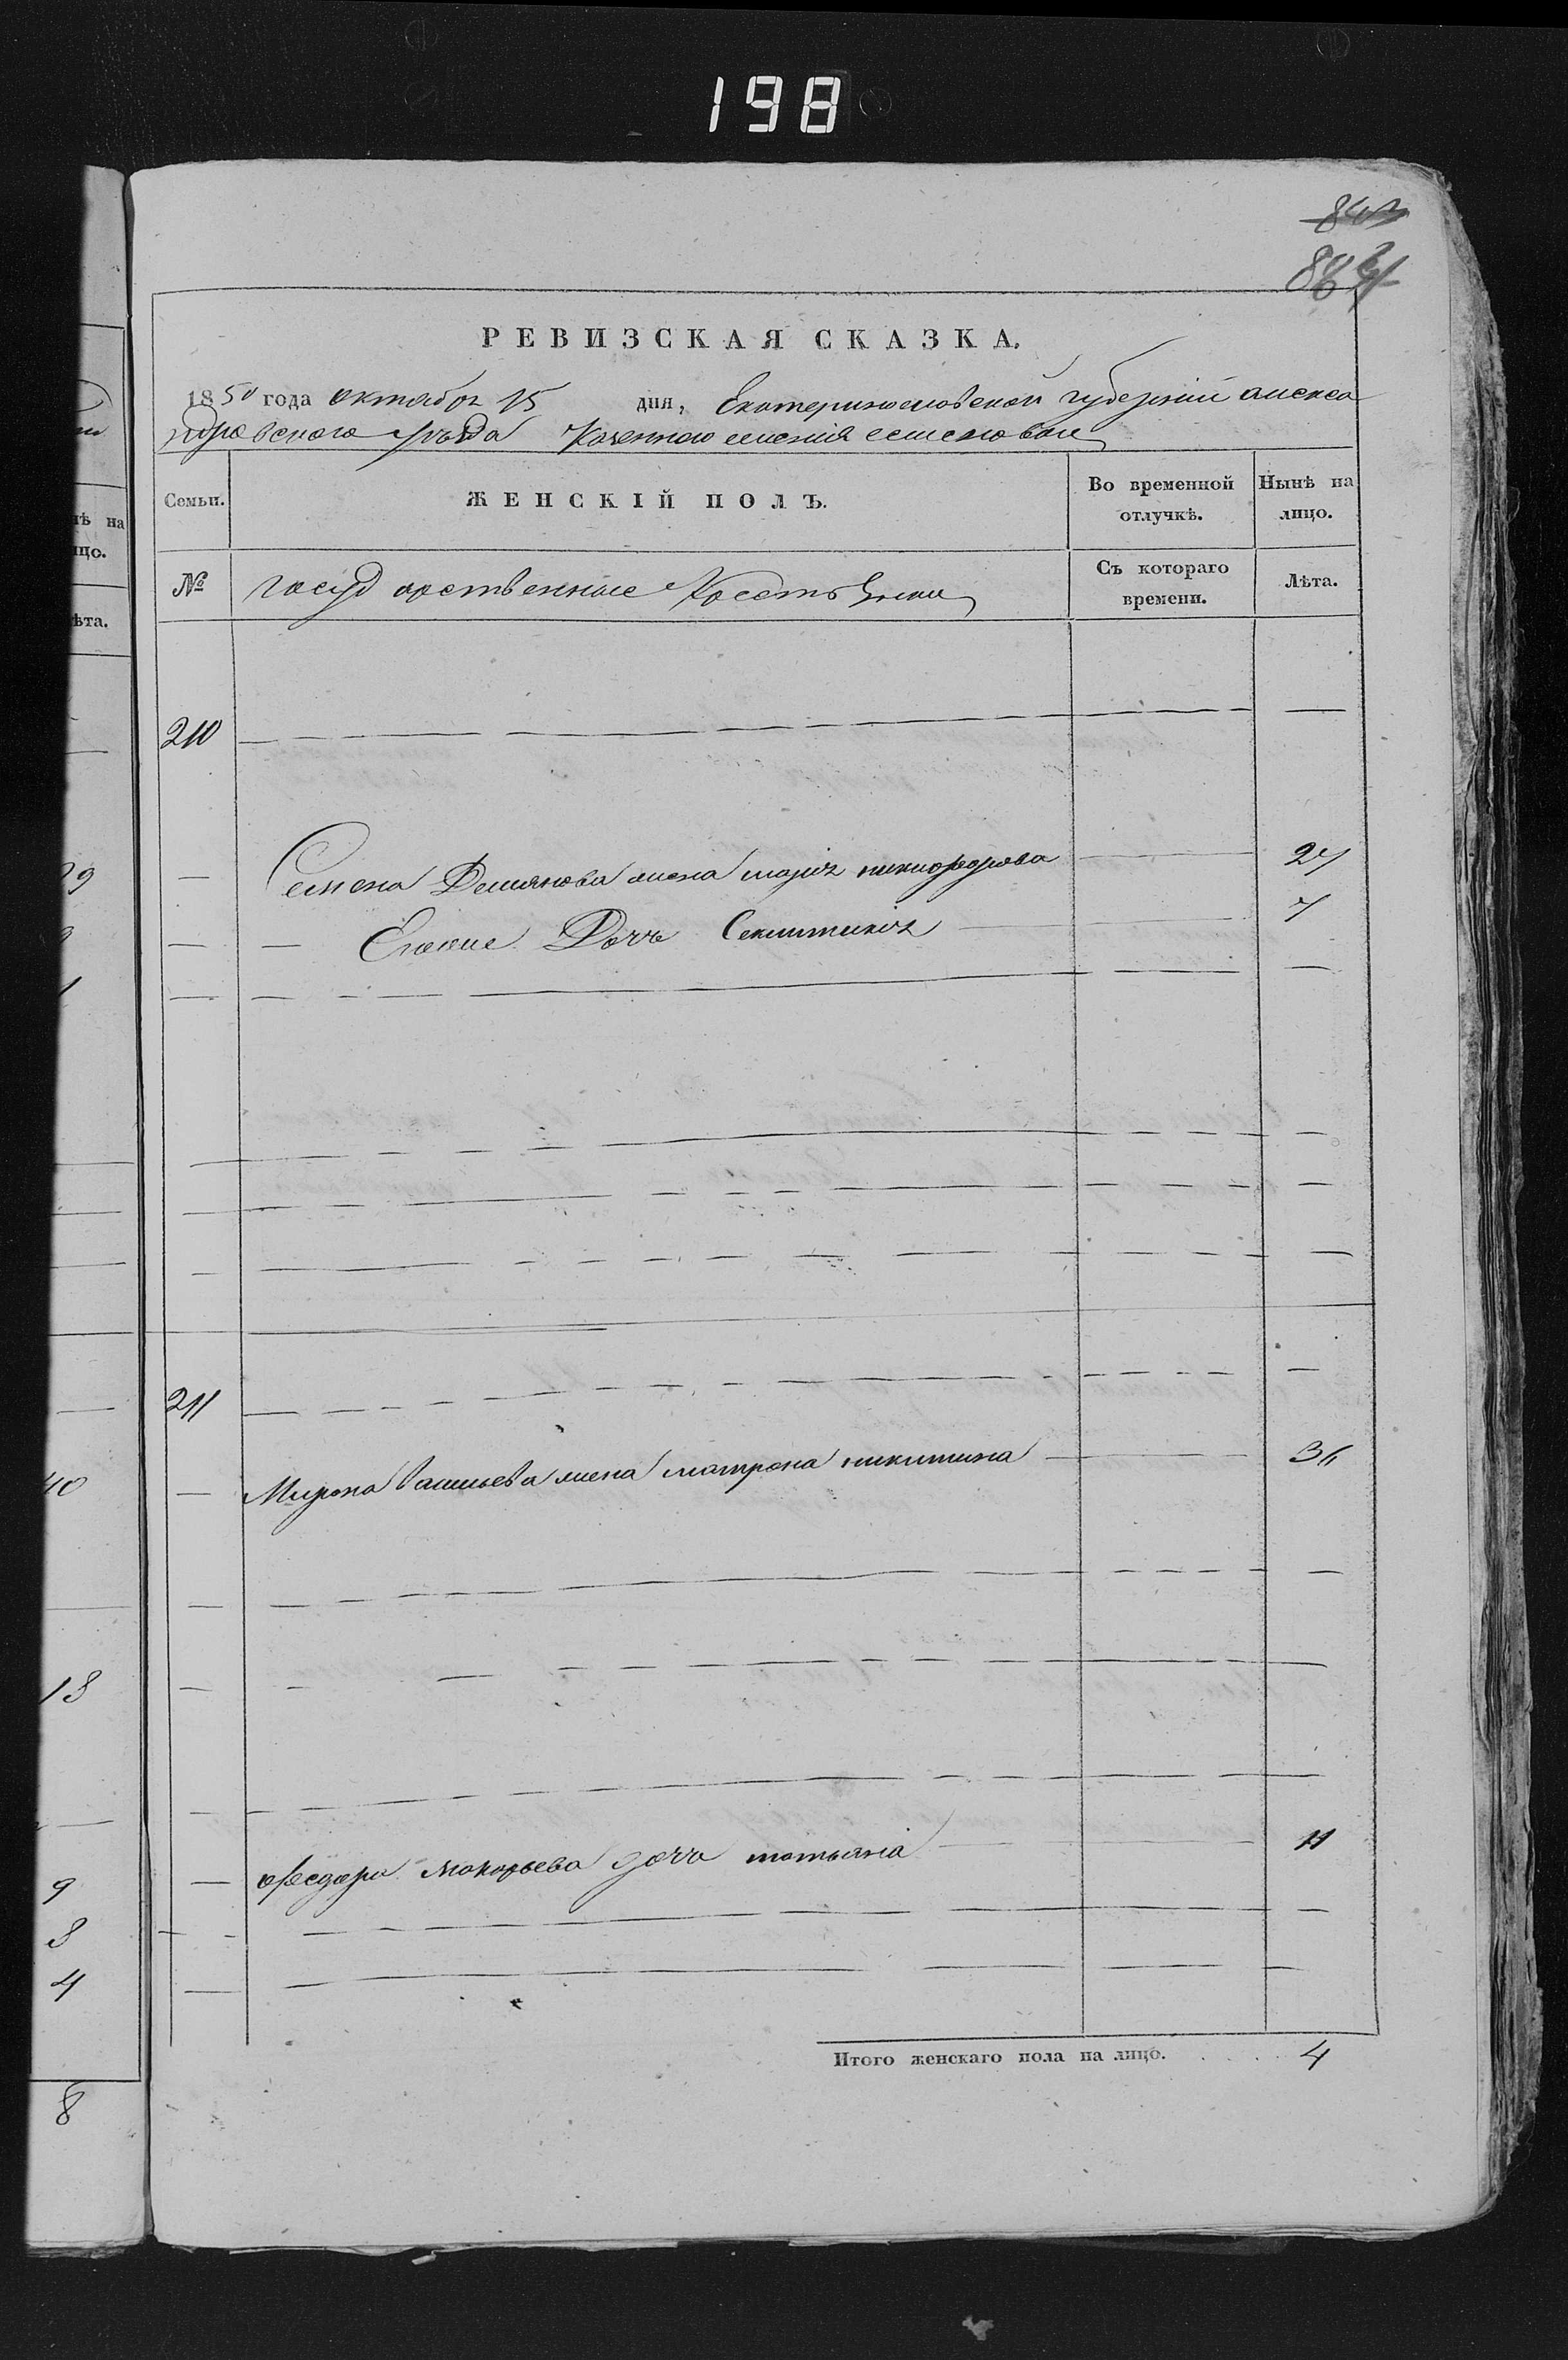 198
РЕВИЗСКАЯ СКАЗКА.
1850 года октября 15 дня, Екатеринославской губернии алекса
ндровского уѣзда Казенного селения
Семьи. ЖЕНСКІЙ ПОЛЪ. Во временной отлучкѣ. Нынѣ на лицо.
№ государственные Крестьяне Съ котораго времени. Лѣта.
210
Семена Демянова жена марія никифорова 27
Дочь 7
211
Мирона Васильева жена матрона никитина 36
федора макарьева дочь татьяна 11
Итого женскаго пола на лицо. . . . . 4
нѣ на
ицо.
ѣта.
9
8
4
8